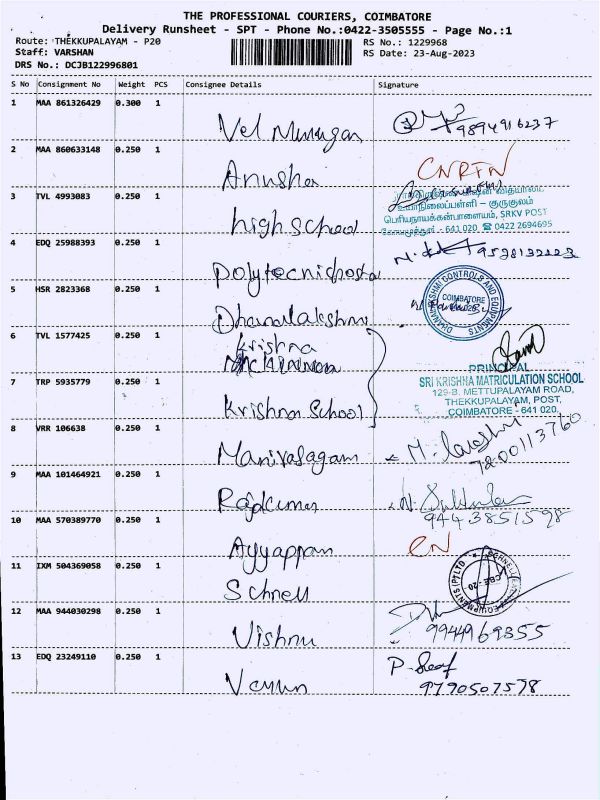 THE PROFESSIONAL COURIERS, COIMBATORE
Delivery Runsheet - SPT - Phone No.:0422-3505555 - Page No.:1
Route: THEKKUPALAYAM - P20
RS No.: 1229968
Staff: VARSHAN
RS Date: 23-Aug-2023
DRS No.: DCJB122996801
S No Consignment No Weight PCS Consignee Details Signature
1 MAA 861326429 0.300 1
Vel Murugan 9894916237
2 MAA 860633148 0.250 1
Anusha CNRTN
3 TVL 4993083 0.250 1
high school
உயர்நிலைப்பள்ளி - குருகுலம்
பெரியநாயக்கன்பாளையம், SRKV POST
கோயமுத்தூர் - 641 020 ☎ 0422 2694695
4 EDQ 25988393 0.250 1
5 HSR 2823368 0.250 1
Dhanalakshmi
DHANALAKSHMI CONTROLS AND EQUIPMENTS
COIMBATORE
6 TVL 1577425 0.250 1
Krishna
PRINCIPAL
7 TRP 5935779 0.250 1
Krishna School
SRI KRISHNA MATRICULATION SCHOOL
129-B, METTUPALAYAM ROAD,
THEKKUPALAYAM, POST,
COIMBATORE - 641 020.
8 VRR 106638 0.250 1
Manivasagam
7200113760
9 MAA 101464921 0.250 1
Rajkumar
10 MAA 570389770 0.250 1
Ayyappan CN
11 IXM 504369058 0.250 1
Schnell
CBE - 20
12 MAA 944030298 0.250 1
Vishnu 9944969355
13 EDQ 23249110 0.250 1
9790507578